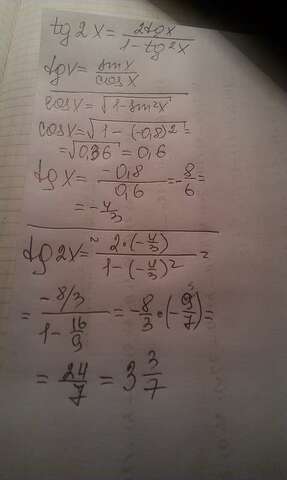 tg2x = 2tgx / 1-tg²x
tgx = sinx / cosx
cosx = √1-sin²x
cosx = √1-(-0,8)² =
= √0,36 = 0,6
tgx = -0,8 / 0,6 = -8/6 =
= -4/3
tg2x = 2·(-4/3) / 1-(-4/3)² =
= -8/3 / 1-16/9 = -8/3·(-9/7) =
= 24/7 = 3 3/7